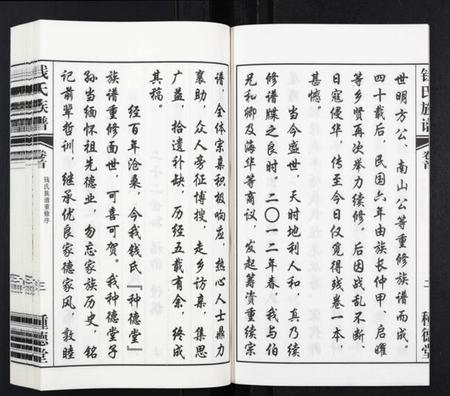 钱氏族谱
卷首
二
种德堂
世明方公、南山公等重修族谱而成。
四十载后，民国六年由族长仲甲、启曜
等乡贤再次举力续修。后因战乱不断、
日寇侵华，传至今日仅觅得残卷一本，
甚憾。
当今盛世，天时地利人和，真乃续
修谱牒之良时。二〇一二年春，我与伯
兄和卿及海华等商议，发起筹资重续宗
谱，全体宗亲积极响应，热心人士鼎力
襄助，众人旁征博搜，走乡访亲，集思
广益，拾遗补缺，历经五载有余，终成
其稿。
经百年沧桑，今我钱氏『种德堂』
族谱重修面世，可喜可贺。我种德堂子
孙当缅怀祖先德业，勿忘家族历史，铭
记前辈哲训，继承优良家德家风，敦睦
钱氏族谱
卷首
钱氏族谱重修序
三
种德堂